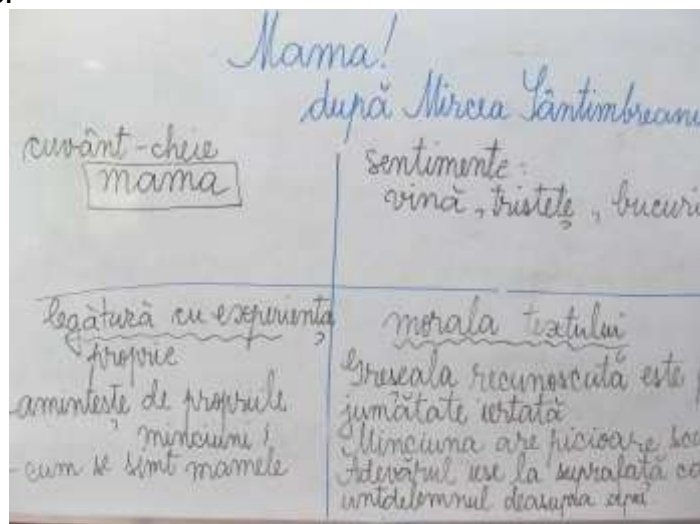 Mama!
după Mircea Sântimbreanu
cuvânt-cheie
mama
sentimente:
vină, tristețe, bucuri
legătură cu experiența
proprie
-amintește de propriile
minciuni!
-cum se simt mamele
morala textului
Greșeala recunoscută este
jumătate iertată
Minciuna are picioare scu
Adevărul iese la suprafață ca
untdelemnul deasupra apei